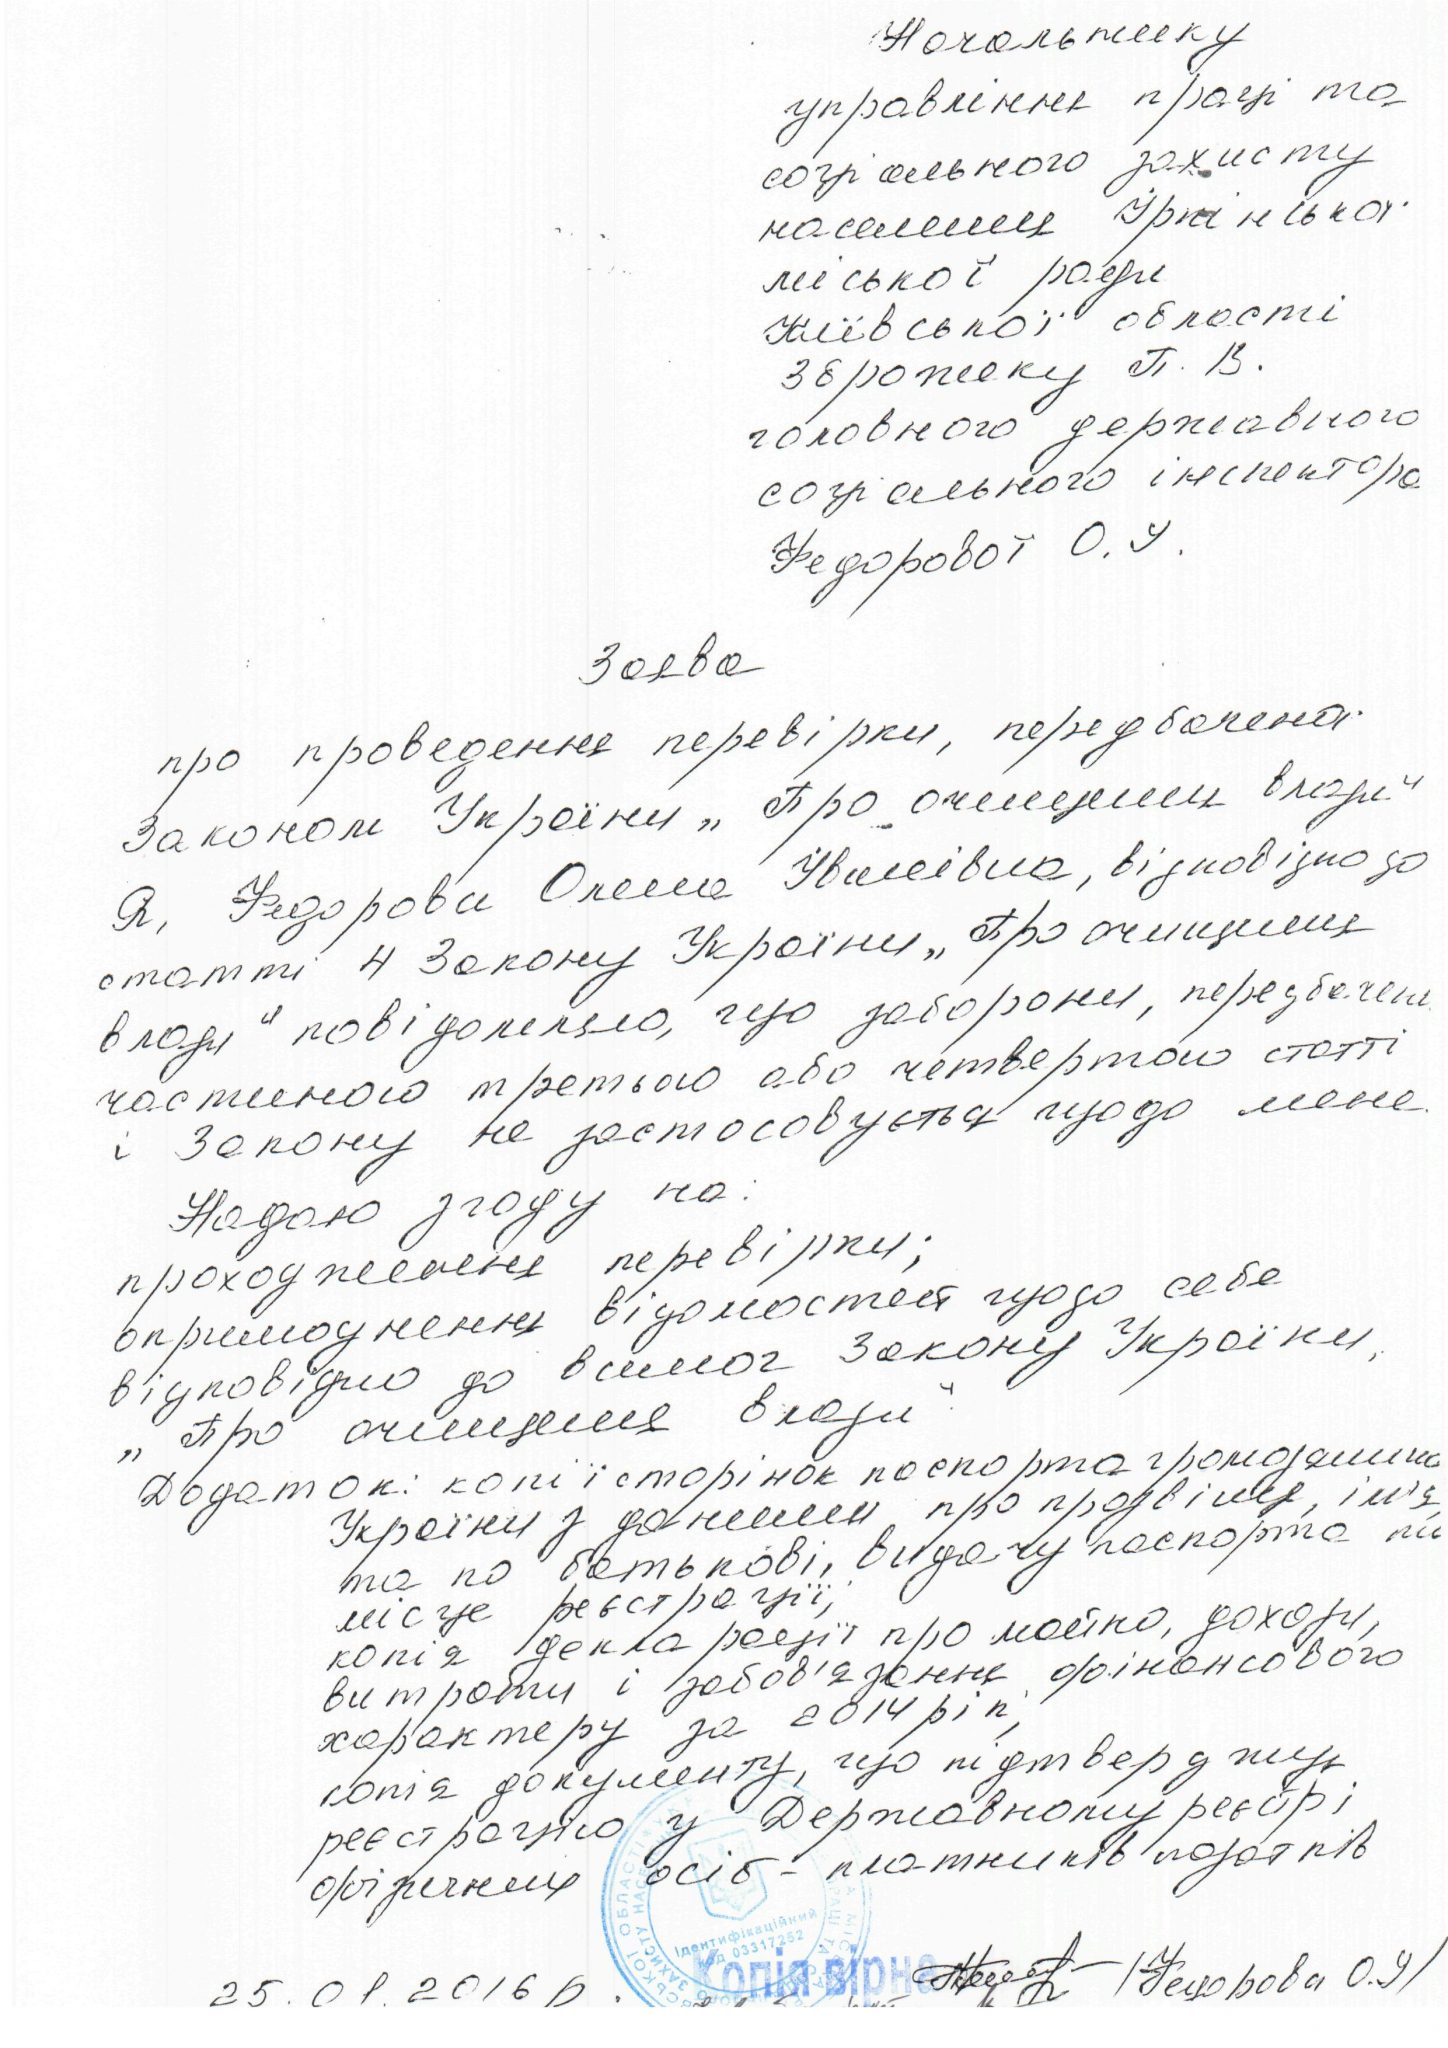 Начальнику
управління праці та
соціального захисту
населення Ірпінської
міської ради
Київської області
Зброжеку П. В.
головного державного
соціального інспектора
Федорової О. І.
Заява
про проведення перевірки, передбаченої
Законом України „Про очищення влади"
Я, Федорова Олена Іванівна, відповідно до
статті 4 Закону України „Про очищення
влади" повідомляю, що заборони, передбачені
частиною третьою або четвертою статті
1 Закону не застосовується щодо мене.
Надаю згоду на:
проходження перевірки;
оприлюднення відомостей щодо себе
відповідно до вимог Закону України
„Про очищення влади".
Додаток: копії сторінок паспорта громадянина
України з даними про прізвище, ім'я,
та по батькові, видачу паспорта та
місце реєстрації;
копія декларації про майно, доходи,
витрати і зобов'язання фінансового
характеру за 2014 рік;
копія документу, що підтверджує
реєстрацію у Державному реєстрі
фізичних осіб - платників податків
Ідентифікаційний
код 03317252
Копія вірна
25.01.2016 р. /Федорова О.І/